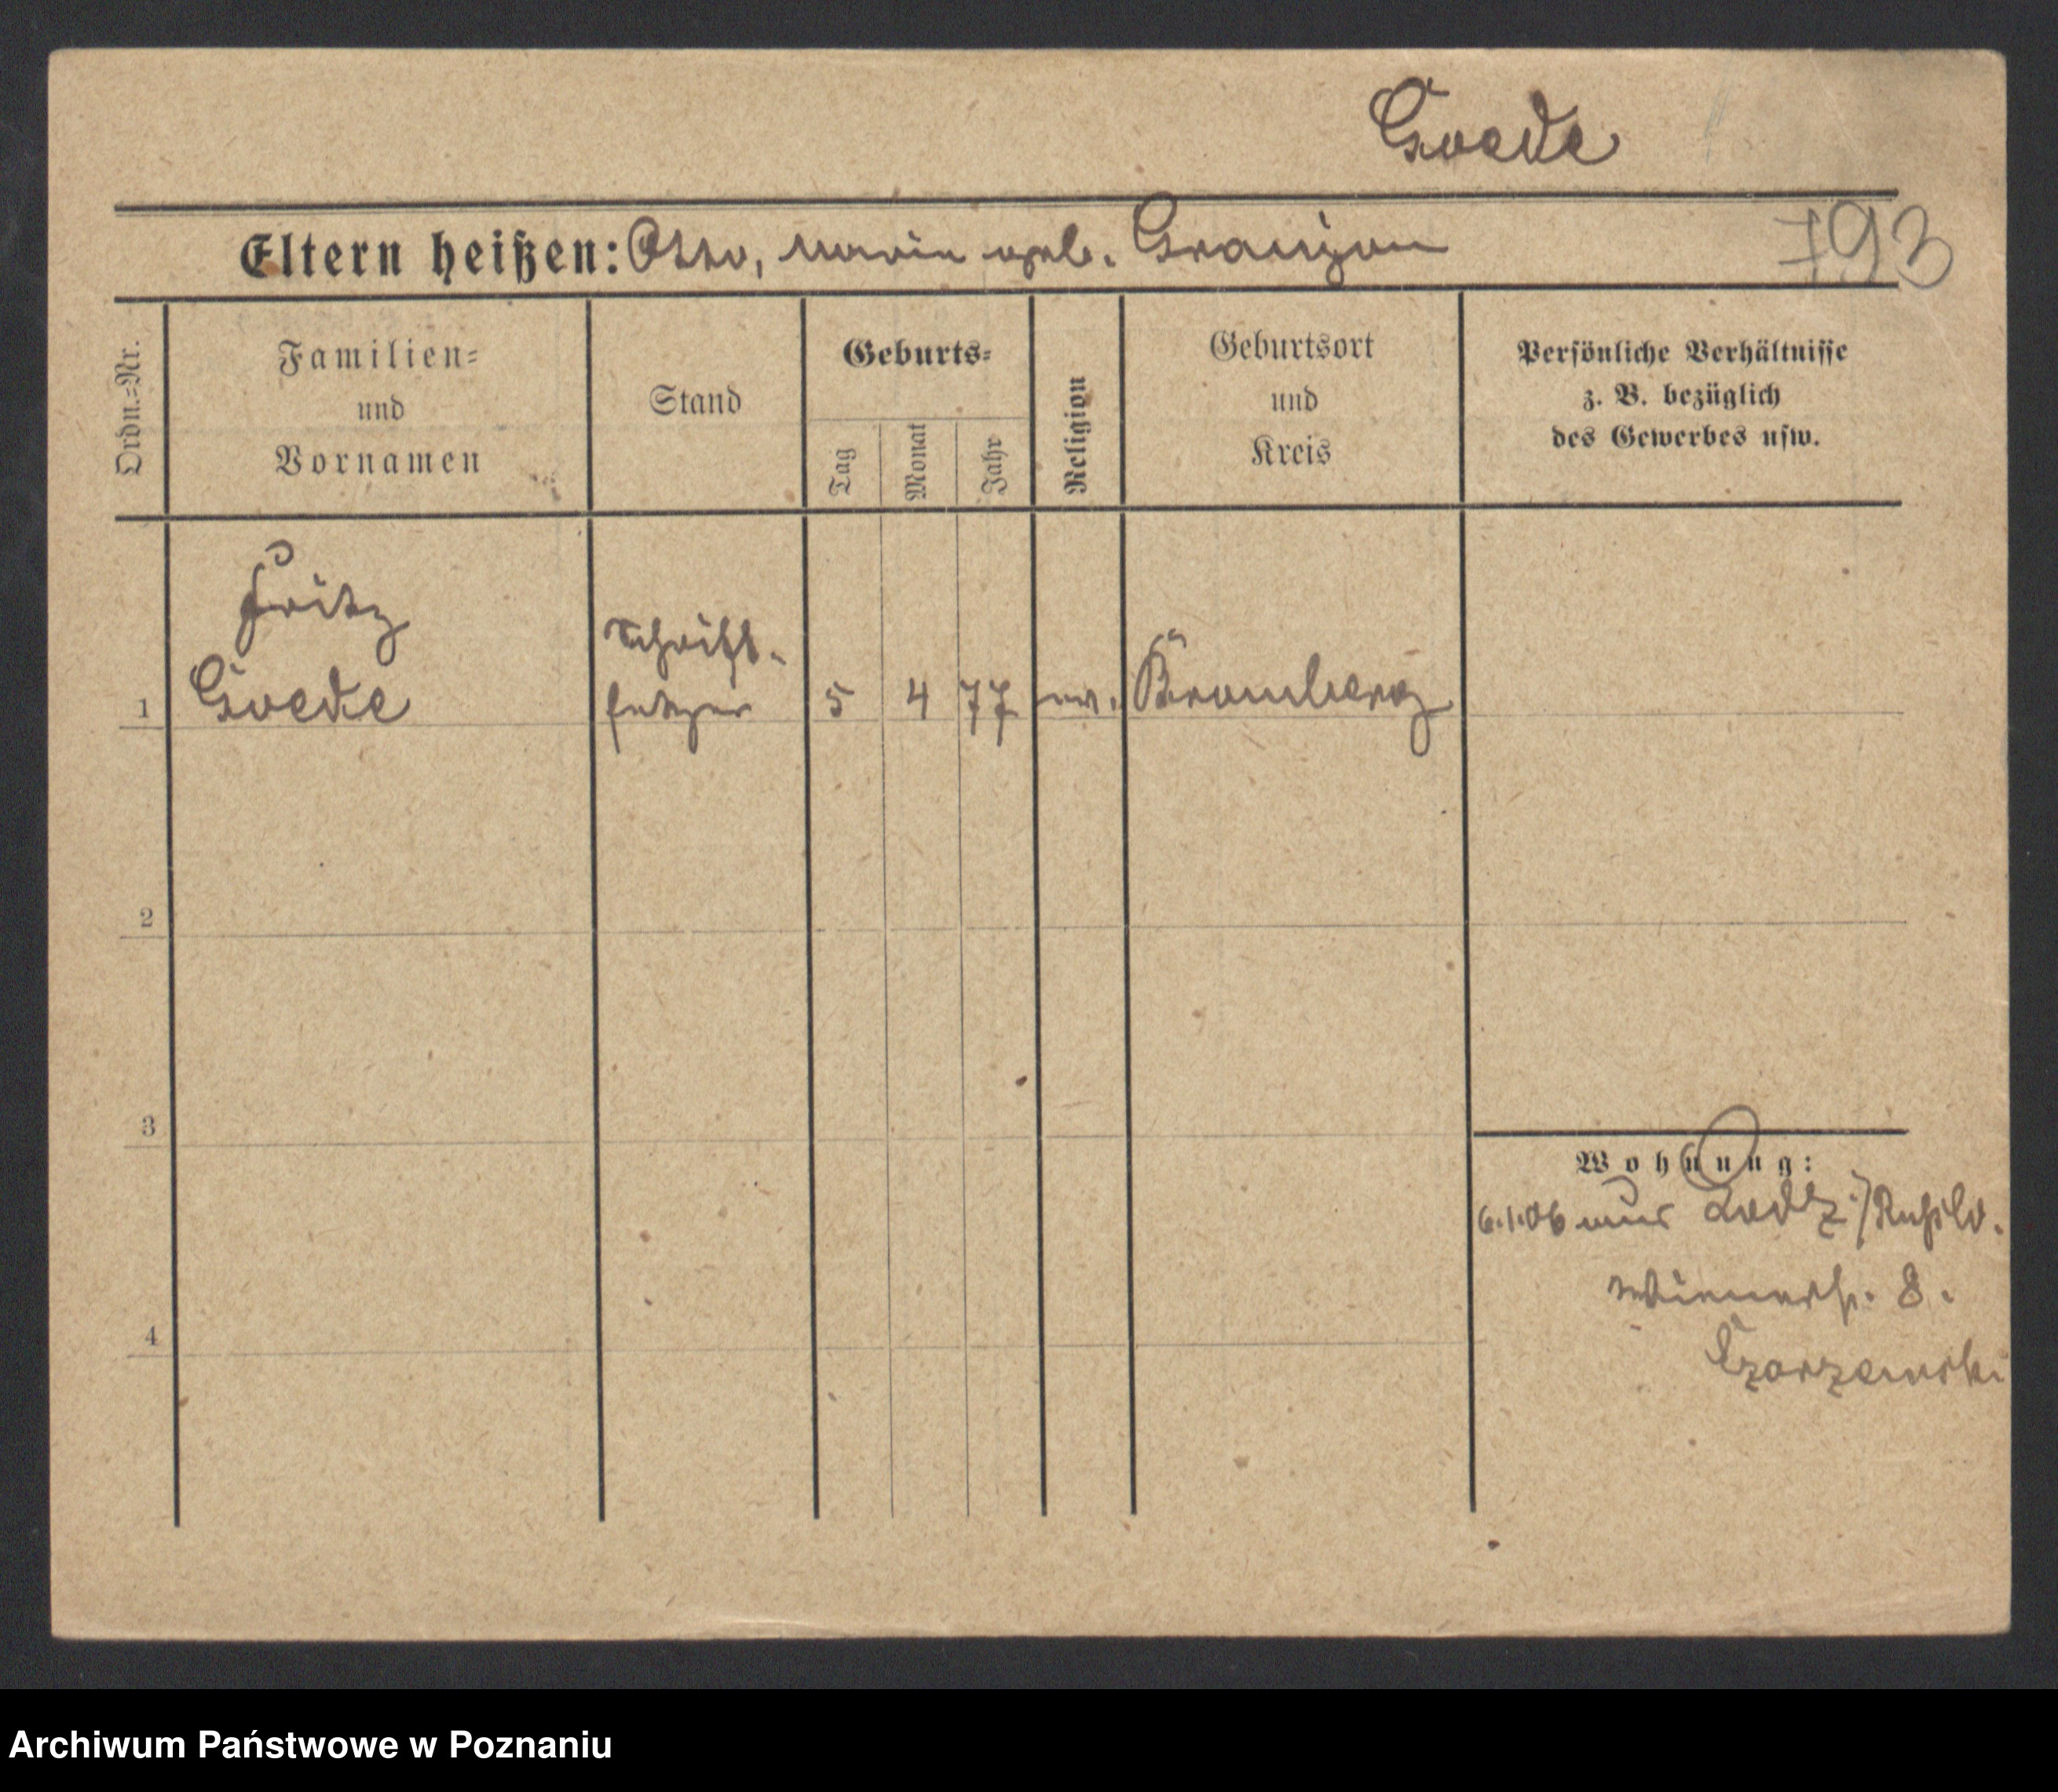 Goede
Eltern heißen: Otto, Marie geb. Granzow
793
Ordn.=Nr.
Familien=
und
Vornamen
Stand
Geburts=
Tag
Monat
Jahr
Religion
Geburtsort
und
Kreis
Persönliche Verhältnisse
z. B. bezüglich
des Gewerbes usw.
Fritz
Goede
Schrift-
setzer
1
5
4
77
ev.
Bromberg
2
3
4
Wohnung:
6.1.06 aus Lodz /Rußld.
8.
Czarzewski
Archiwum Państwowe w Poznaniu